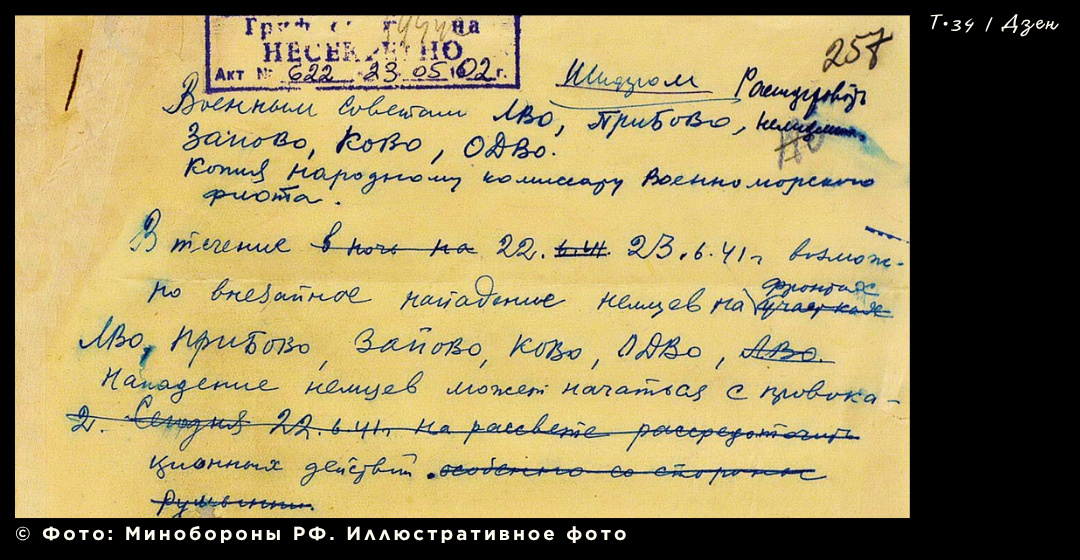 Т-34 | Дзен
Гриф на
НЕСЕКРЕТНО
Акт № 622 23.05.02г.
257
Шифром
Расшифровать
немедленно
Военным советам ЛВО, ПрибОВО,
ЗапОВО, КОВО, ОДВО.
Копия народному комиссару Военно морского
флота.
В течение в ночь на 22. 6.41. 23.6.41г возмож-
но внезапное нападение немцев на участках
фронтах
ЛВО, ПрибОВО, ЗапОВО, КОВО, ОДВО, ЛВО.
Нападение немцев может начаться с провока-
2. Сегодня 22.6.41г на рассвете рассредоточить
ционных действий. особенно со стороны
Румынии.
© Фото: Минобороны РФ. Иллюстративное фото